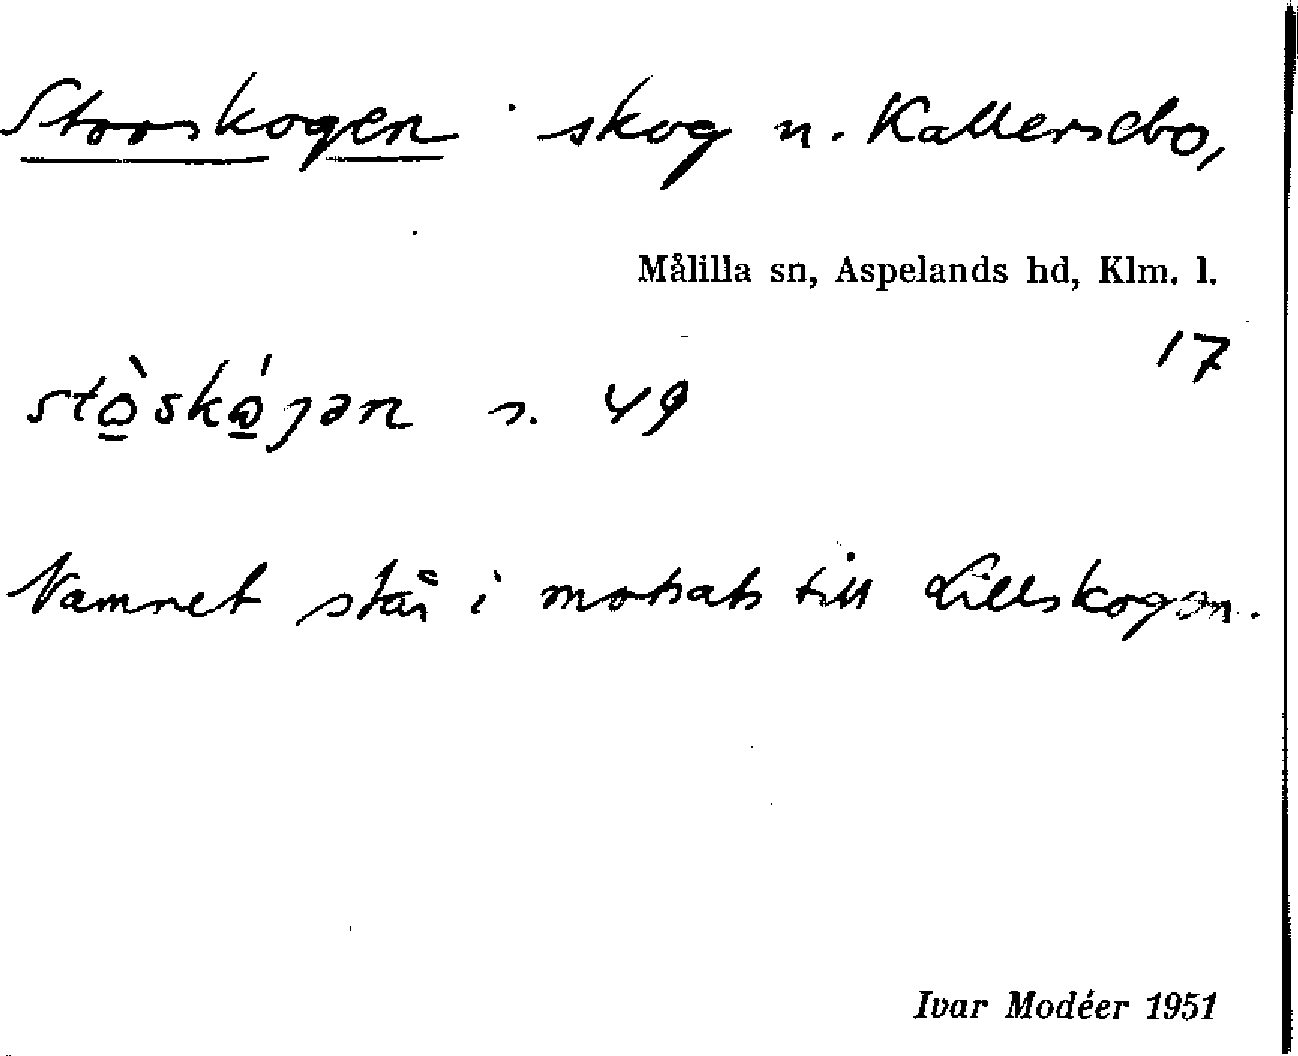 Storskogen skog n. Kallersebo,
Målilla sn, Aspelands hd, Klm. l.
17
stò̱skó̱gən s. 49
Namnet står i motsats till Lillskogen.
Ivar Modéer 1951